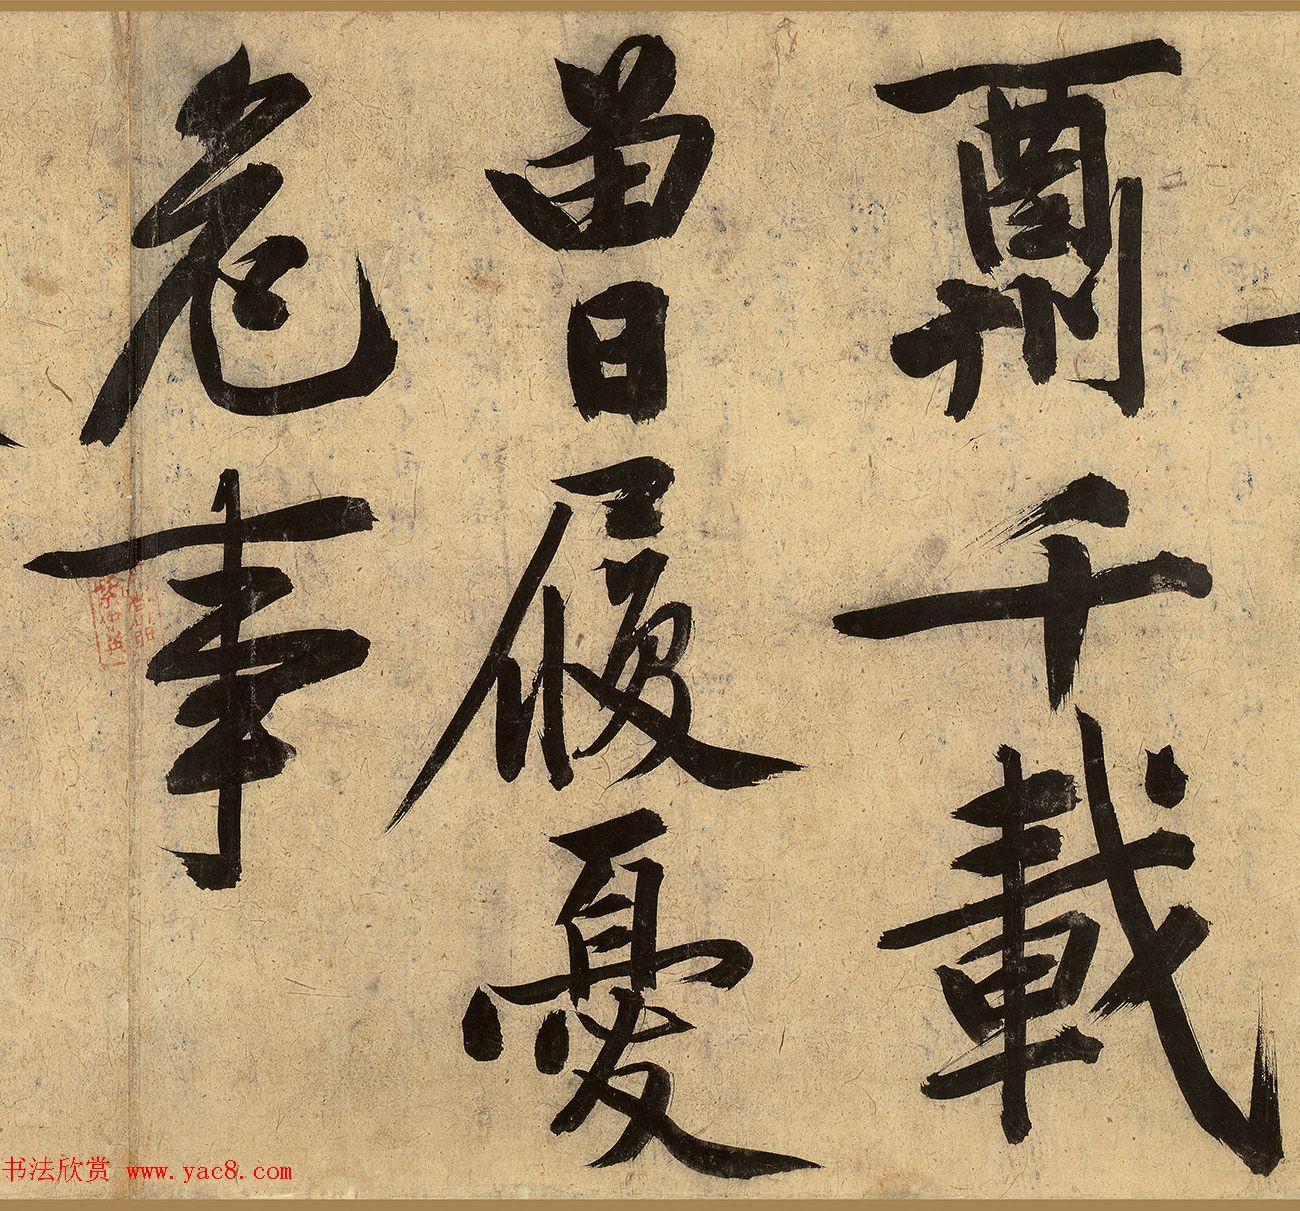 千載
曾履憂
危事
书法欣赏 www.yac8.com